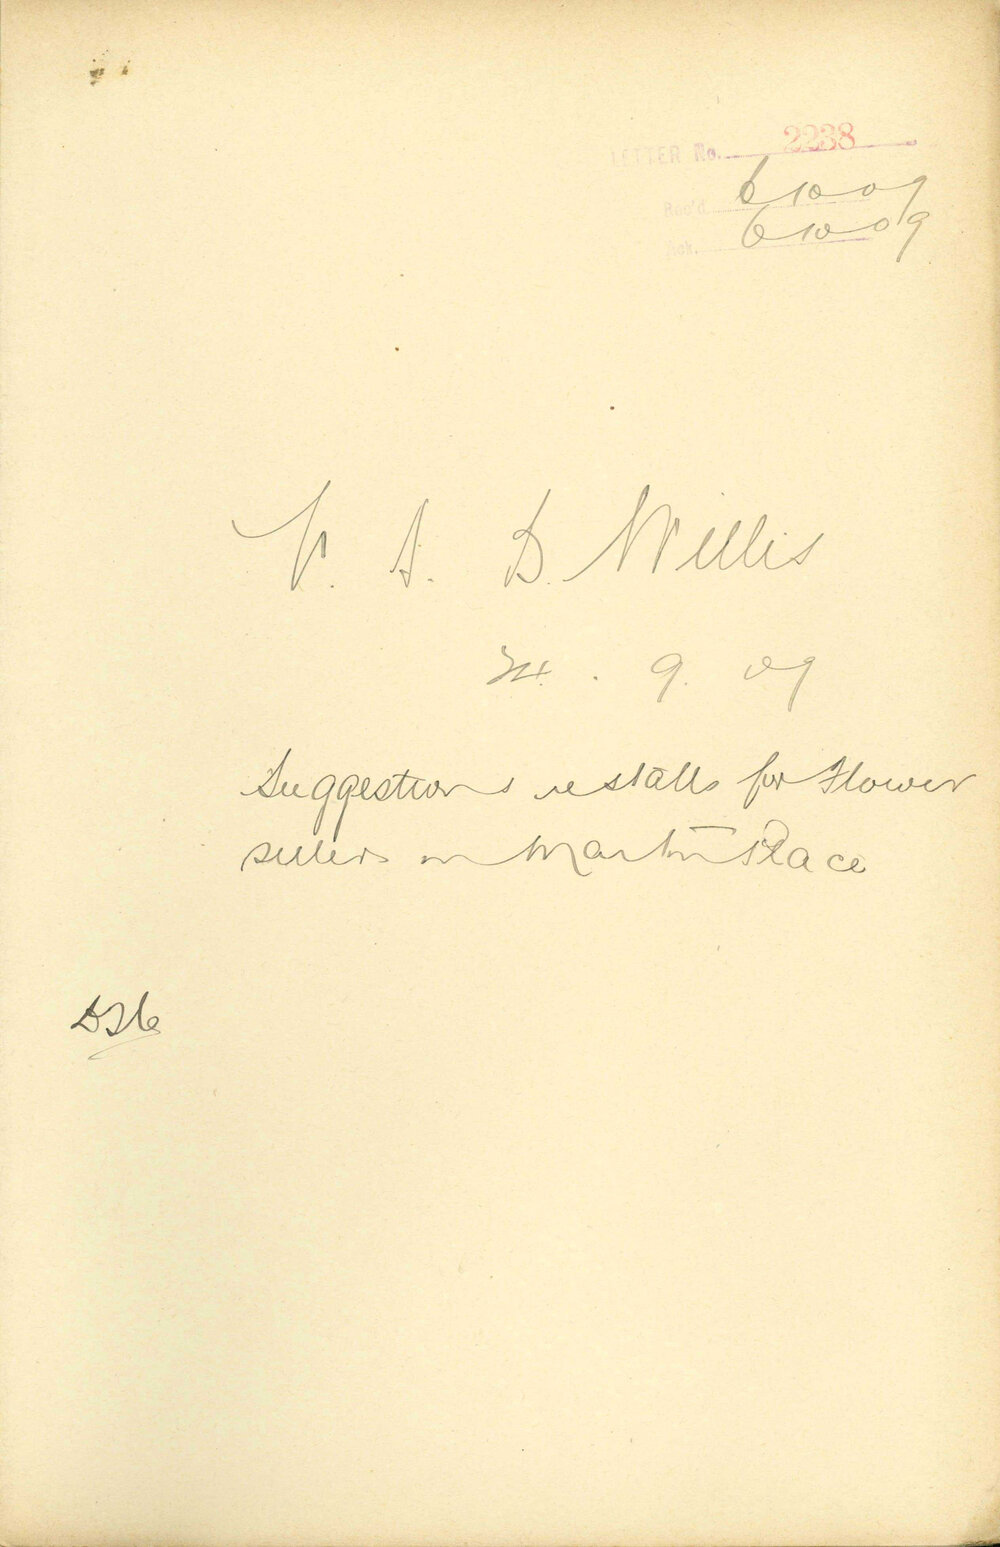 LETTER No. 2238
Rec'd 6 10 09
Ack. 6 10 09
V. S. B. Willis
9. 09
Suggestions re stalls for Flower
sellers in Martin Place